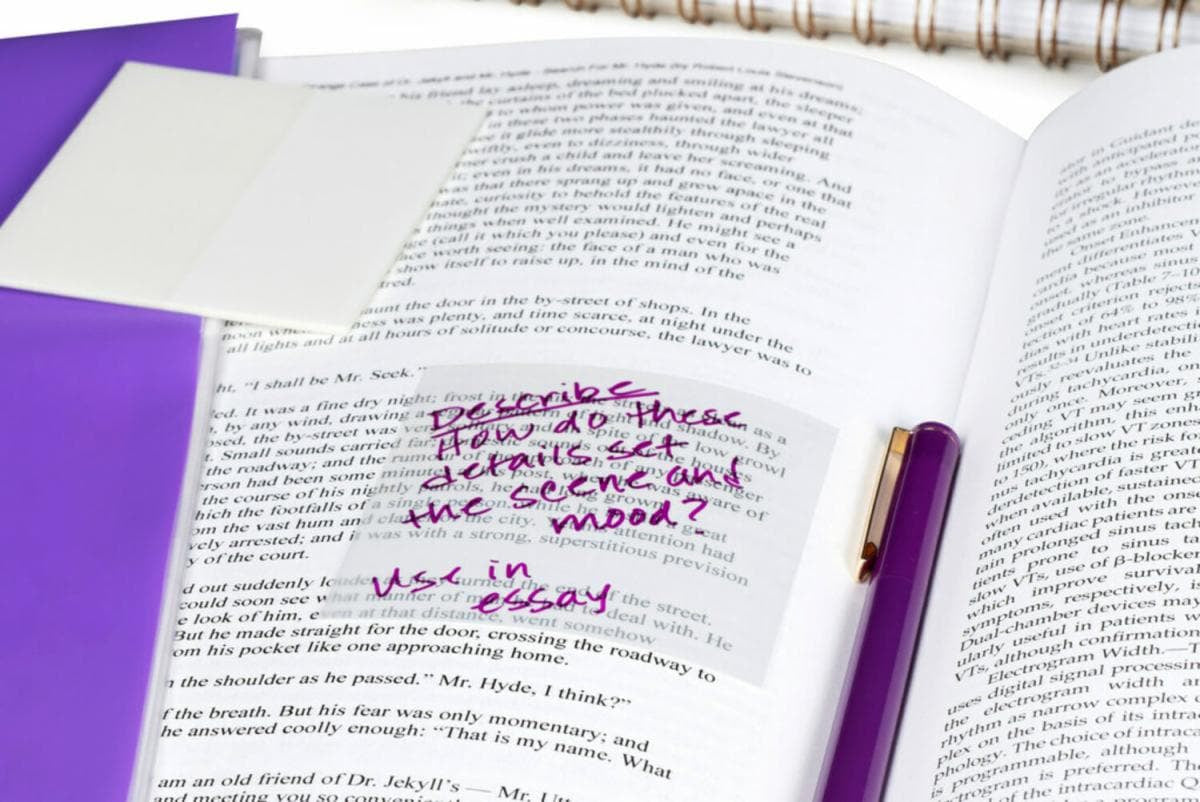 range Case of Dr. Jekyll and Mr. Hyde - Search For Mr. Hyde (by Robert Louis Stevenson)
his friend lay asleep, dreaming and smiling at his dreams;
the curtains of the bed plucked apart, the sleeper
to whom power was given, and even at that
in these two phases haunted the lawyer all
ee it glide more stealthily through sleeping
wiftly, even to dizziness, through wider
ner crush a child and leave her screaming. And
it; even in his dreams, it had no face, or one that
was that there sprang up and grew apace in the
nate, curiosity to behold the features of the real
hought the mystery would lighten and perhaps
things when well examined. He might see a
ge (call it which you please) and even for the
ace worth seeing: the face of a man who was
show itself to raise up, in the mind of the
red.
aunt the door in the by-street of shops. In the
noon when ness was plenty, and time scarce, at night under the
all lights and at all hours of solitude or concourse, the lawyer was to
ht, "I shall be Mr. Seek."
ed. It was a fine dry night; frost in the as a
, by any wind, drawing a of light and shadow. By
osed, the by-street was very and spite of the low growl
t. Small sounds carried far; domestic sounds of the houses
the roadway; and the rumor of the approach of any passenger
erson had been some minutes post, when he was aware of
the course of his nightly patrols, he had grown
hich the footfalls of a single person, while he great
om the vast hum and clatter of the city. attention had
vely arrested; and it was with a strong, superstitious prevision
y of the court.
d out suddenly louder as they turned the end of the street.
could soon see what manner of man to deal with. He
e look of him, even at that distance, went somehow
But he made straight for the door, crossing the roadway to
om his pocket like one approaching home.
n the shoulder as he passed." Mr. Hyde, I think?"
f the breath. But his fear was only momentary; and
he answered coolly enough: "That is my name. What
am an old friend of Dr. Jekyll's — Mr. Utt
and meeting you so convenien
Describe
How do these
details set
the scene and
mood?
Use in
essay
ator in Guidant de
with anticipated p
ity as an accelerato
erator by bypass a
for irregular rhythm
to a shock. However
used as an inhibitor
the same zone.
Onset Enhancer
ment differentiates V
cardia because most
onset, whereas sinus
gradually (Table 7-10
onset criterion reject
tection of 64% to 98%
dias with heart rates
results in underdetecti
VTs.32 Unlike stabili
ously reevaluates the
during tachycardia, on
only once. Moreover,
ceding VT may seem g
the algorithm, this enh
limited to slow VT zones
to 150), where the risk fo
nus tachycardia is greate
derdetection of faster VT
when available, sustained
often used with the ons
many cardiac patients are
tain prolonged sinus tach
tients prone to sinus ta
slow VTs, use of β-blocke
which improve surviva
symptoms, respectively, is
Dual-chamber devices may
ularly useful in patients w
VTs, although confirmation
Electrogram Width.—T
uses digital signal processin
the electrogram width an
rhythm as narrow complex
plex on the basis of its intra
phology. The choice of intraca
is programmable, although
trogram is preferred. The
of the intracardiac Q